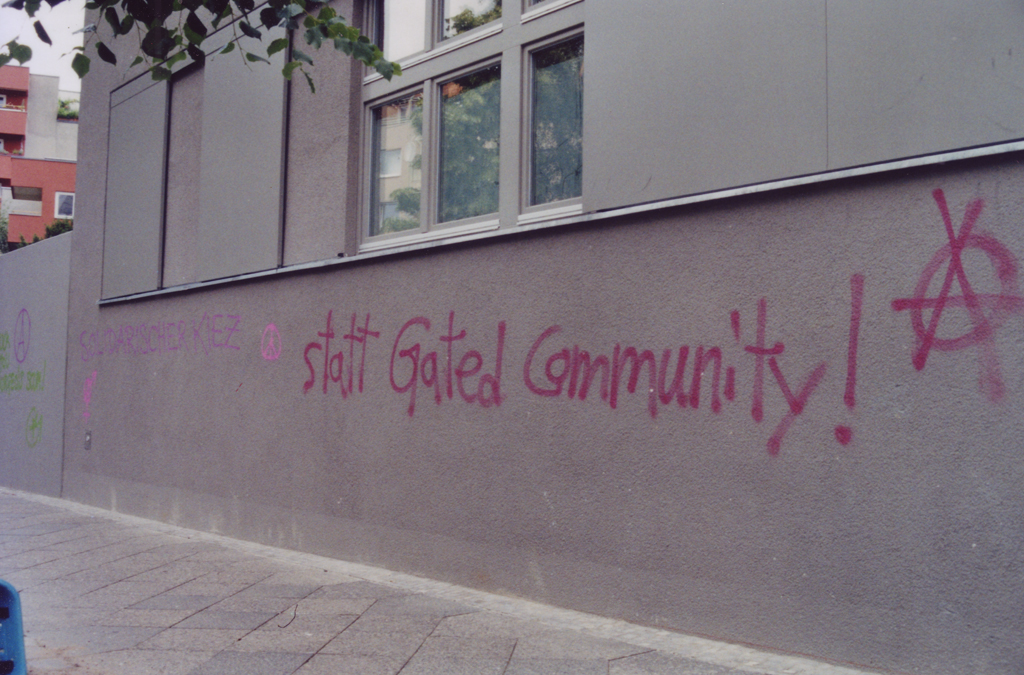 SOLIDARISCHER KIEZ
statt Gated Community!